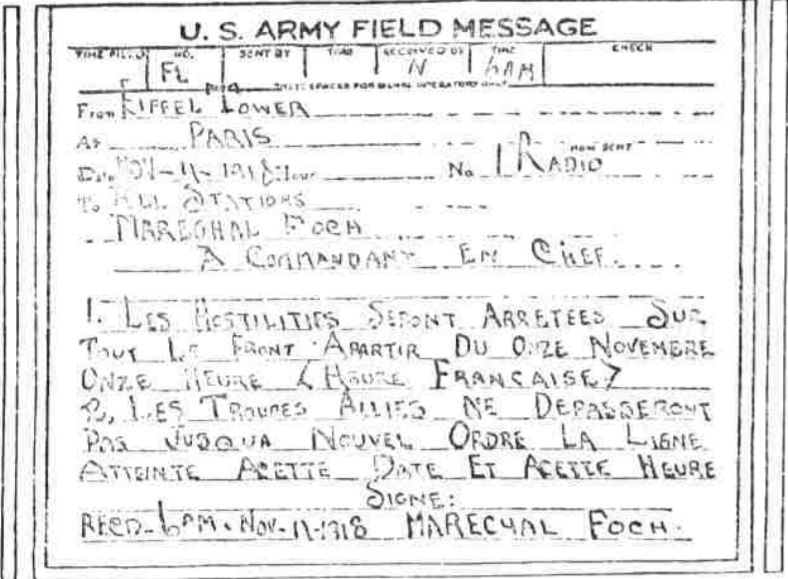 U. S. ARMY FIELD MESSAGE
TIME FILED NO. SENT BY TIME RECEIVED BY TIME CHECK
FL N 6AM
THESE SPACES FOR SIGNAL OPERATORS ONLY
From EIFFEL TOWER
At PARIS
Date NOV-11-1918 Hour No. 1 HOW SENT RADIO
To ALL STATIONS
MARECHAL FOCH
A COMMANDANT EN CHEF.
1. LES HOSTILITIES SERONT ARRETEES SUR
TOUT LE FRONT APARTIR DU ONZE NOVEMBRE
ONZE HEURE (HEURE FRANCAISE)
2. LES TROUPES ALLIES NE DEPASSERONT
PAS JUSQUA NOUVEL ORDRE LA LIGNE
ATTEINTE ACETTE DATE ET ACETTE HEURE
SIGNE:
RECD-6AM. NOV-11-1918 MARECHAL FOCH.